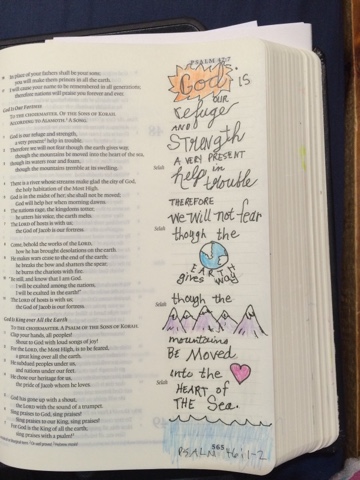 16 In place of your fathers shall be your sons;
you will make them princes in all the earth.
17 I will cause your name to be remembered in all generations;
therefore nations will praise you forever and ever.
God Is Our Fortress
TO THE CHOIRMASTER. OF THE SONS OF KORAH.
ACCORDING TO ALAMOTH. A SONG.
God is our refuge and strength,
a very present help in trouble.
Therefore we will not fear though the earth gives way,
though the mountains be moved into the heart of the sea,
though its waters roar and foam,
though the mountains tremble at its swelling. Selah
There is a river whose streams make glad the city of God,
the holy habitation of the Most High.
God is in the midst of her; she shall not be moved;
God will help her when morning dawns.
The nations rage, the kingdoms totter;
he utters his voice, the earth melts.
The LORD of hosts is with us;
the God of Jacob is our fortress. Selah
Come, behold the works of the LORD,
how he has brought desolations on the earth.
He makes wars cease to the end of the earth;
he breaks the bow and shatters the spear;
he burns the chariots with fire.
"Be still, and know that I am God.
I will be exalted among the nations,
I will be exalted in the earth!"
The LORD of hosts is with us;
the God of Jacob is our fortress. Selah
God Is King over All the Earth
TO THE CHOIRMASTER. A PSALM OF THE SONS OF KORAH.
Clap your hands, all peoples!
Shout to God with loud songs of joy!
For the LORD, the Most High, is to be feared,
a great king over all the earth.
He subdued peoples under us,
and nations under our feet.
He chose our heritage for us,
the pride of Jacob whom he loves. Selah
God has gone up with a shout,
the LORD with the sound of a trumpet.
Sing praises to God; sing praises!
Sing praises to our King; sing praises!
For God is the King of all the earth;
sing praises with a psalm!
God IS
OUR
Refuge
AND
Strength
A VERY PRESENT
help in
trouble
THEREFORE
We Will not fear
though the
EARTH
gives way
though the
mountains
BE MOVED
into the
HEART OF
THE Sea.
565
PSALM 46:1-2